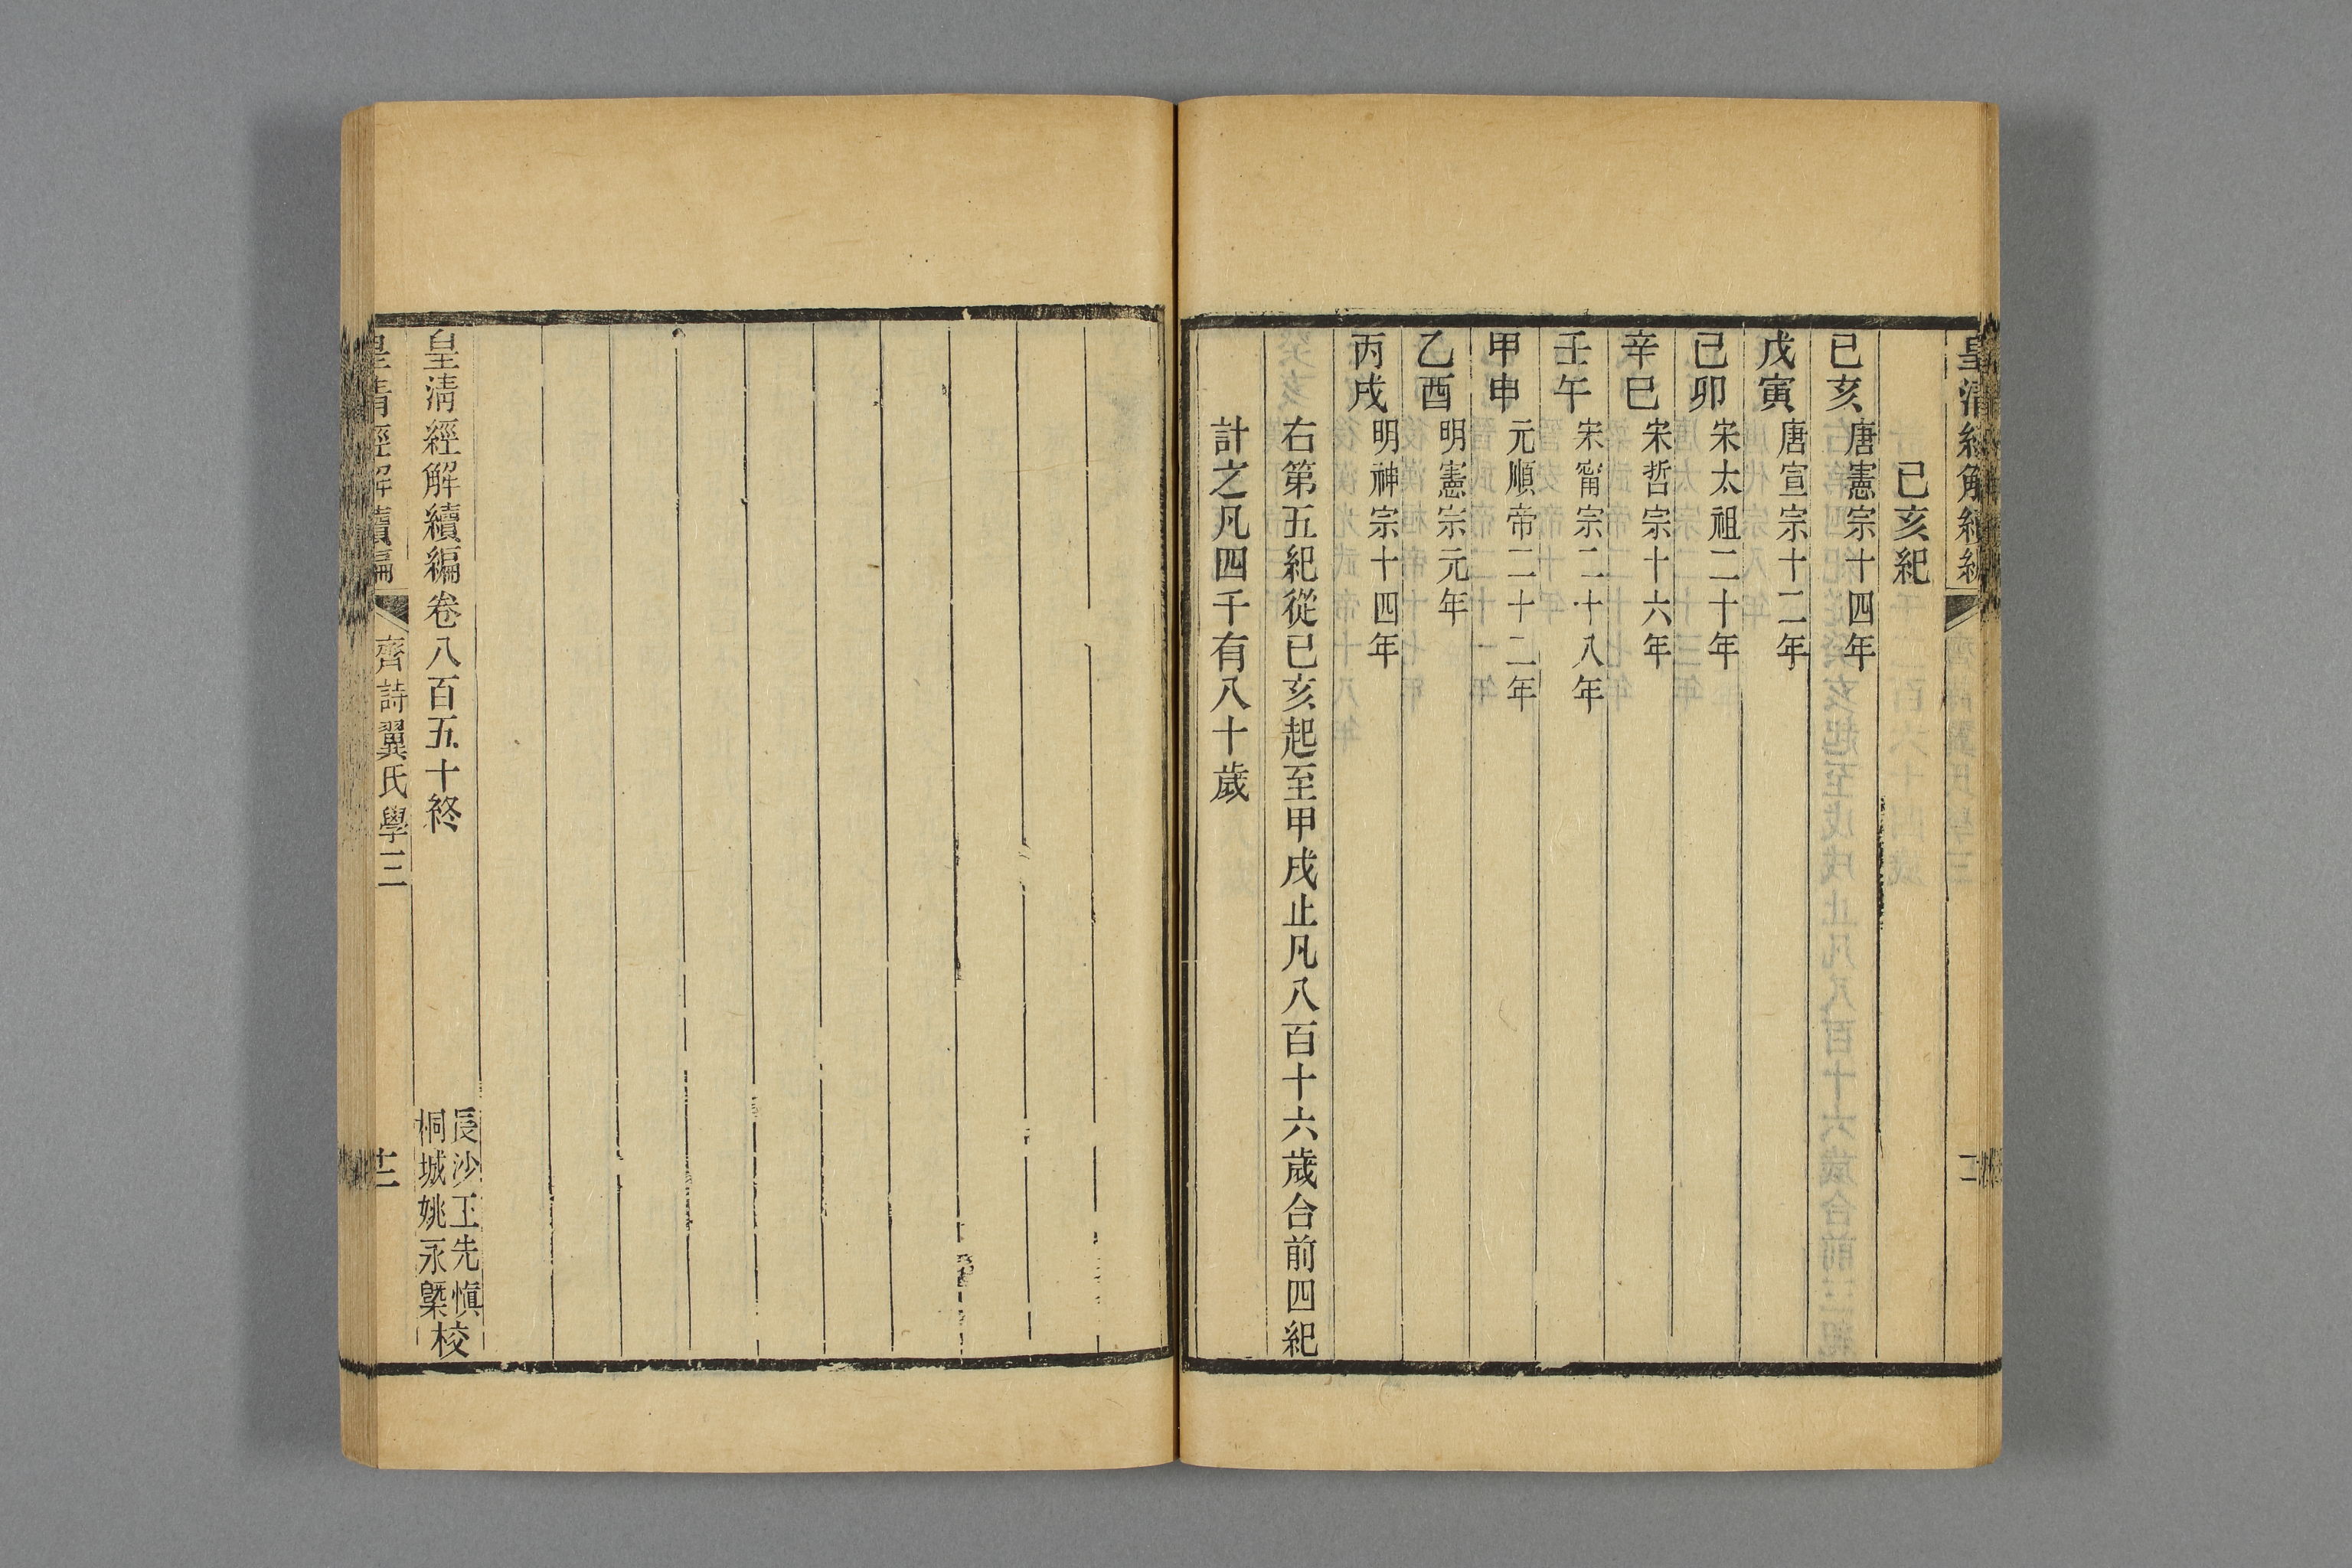 皇清經解續編
己亥紀
己亥 唐憲宗十四年
戊寅 唐宣宗十二年
己卯 宋太祖二十年
辛巳 宋哲宗十六年
壬午 宋甯宗二十八年
甲申 元順帝二十二年
乙酉 明憲宗元年
丙戌 明神宗十四年
右第五紀從己亥起至甲戌止凡八百十六歲合前四紀
計之凡四千有八十歲
皇清經解續編卷八百五十終
長沙王先愼
桐城姚永㮣校
皇清經解續編 齊詩翼氏學三 十二